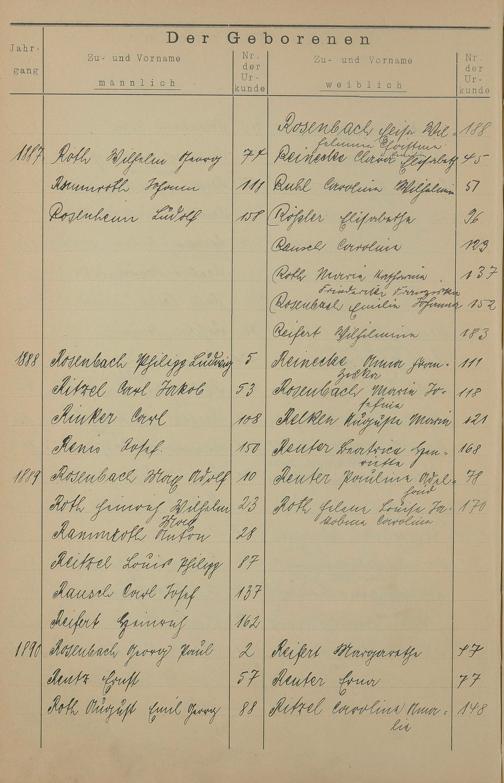 Der Geborenen
Jahrgang
Zu- und Vorname
männlich
Nr. der Urkunde
Zu- und Vorname
weiblich
Nr. der Urkunde
Rosenbach Elise Wil- 188
helmine Christine
1887 Roth Wilhelm Georg 74 Reinecke Clara Elisabeth 45
Rammroth Johann 111 Ruhl Carolina Wilhelmine 51
Rosenheim Ludolf 158 Rößler Elisabetha 96
Rausch Carolina 129
Roth Maria Katharina 137
Friederike Franziska
Rosenbach Emilie Johanna 152
Reifert Wilhelmine 183
1888 Rosenbach Philipp Ludwig 5 Reinecke Anna Fran- 111
ziska
Ritzel Carl Jakob 53 Rosenbach Maria Jo- 118
sefine
Rinker Carl 108 Relken Auguste Maria 121
Renis Josef 150 Reuter Beatrice Hen- 168
riette
1889 Rosenbach Max Adolf 10 Reuter Pauline Adel- 78
heid
Roth Heinrich Wilhelm 23 Roth Helene Louise Ja- 170
Max kobine Carolina
Rammroth Anton 28
Reitzel Louis Philipp 87
Rausch Carl Josef 137
Reifert Heinrich 162
1890 Rosenbach Georg Paul 2 Reifert Margarethe 47
Rentz Ernst 57 Reuter Erna 77
Roth August Emil Georg 88 Ritzel Carolina Ama- 148
lie